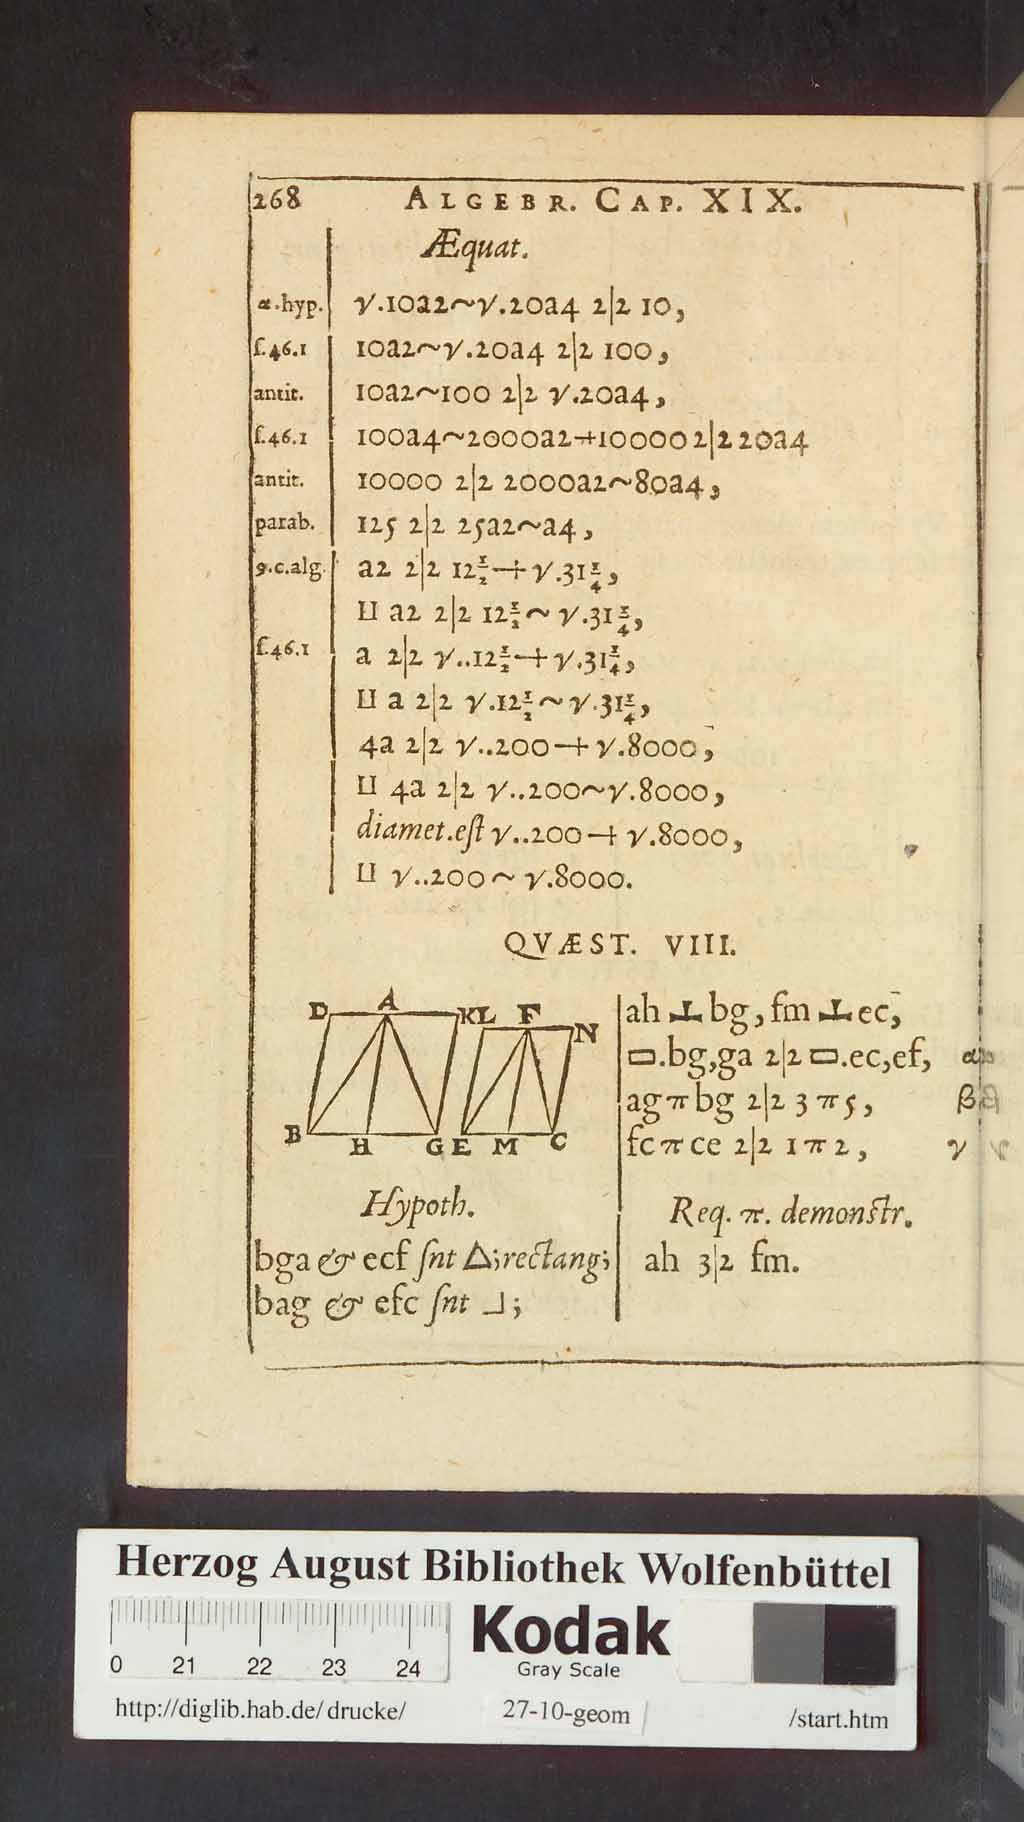 268 ALGEBR. CAP. XIX.
Æquat.
α.hyp. √.10a2~√.20a4 2|2 10,
ſ.46.1 10a2~√.20a4 2|2 100,
antit. 10a2~100 2|2 √.20a4,
ſ.46.1 100a4~2000a2+10000 2|2 20a4
antit. 10000 2|2 2000a2~80a4,
parab. 125 2|2 25a2~a4,
9.c.alg. a2 2|2 12½+√.31¼,
⊔ a2 2|2 12½~√.31¼,
ſ.46.1 a 2|2 √..12½+√.31¼,
⊔ a 2|2 √.12½~√.31¼,
4a 2|2 √..200+√.8000,
⊔ 4a 2|2 √..200~√.8000,
diamet.eſt √..200+√.8000,
⊔ √..200~√.8000.
QVÆST. VIII.
D A KL F N
B H G E M C
Hypoth.
bga & ecf ſnt △;rectang;
bag & efc ſnt ⅃;
ah ⊥ bg, fm ⊥ ec,
▭.bg,ga 2|2 ▭.ec,ef, α
ag π bg 2|2 3 π 5, β
fc π ce 2|2 1 π 2, γ
Req. π. demonſtr.
ah 3|2 fm.
Herzog August Bibliothek Wolfenbüttel
0 21 22 23 24
Kodak
Gray Scale
http://diglib.hab.de/drucke/ 27-10-geom /start.htm